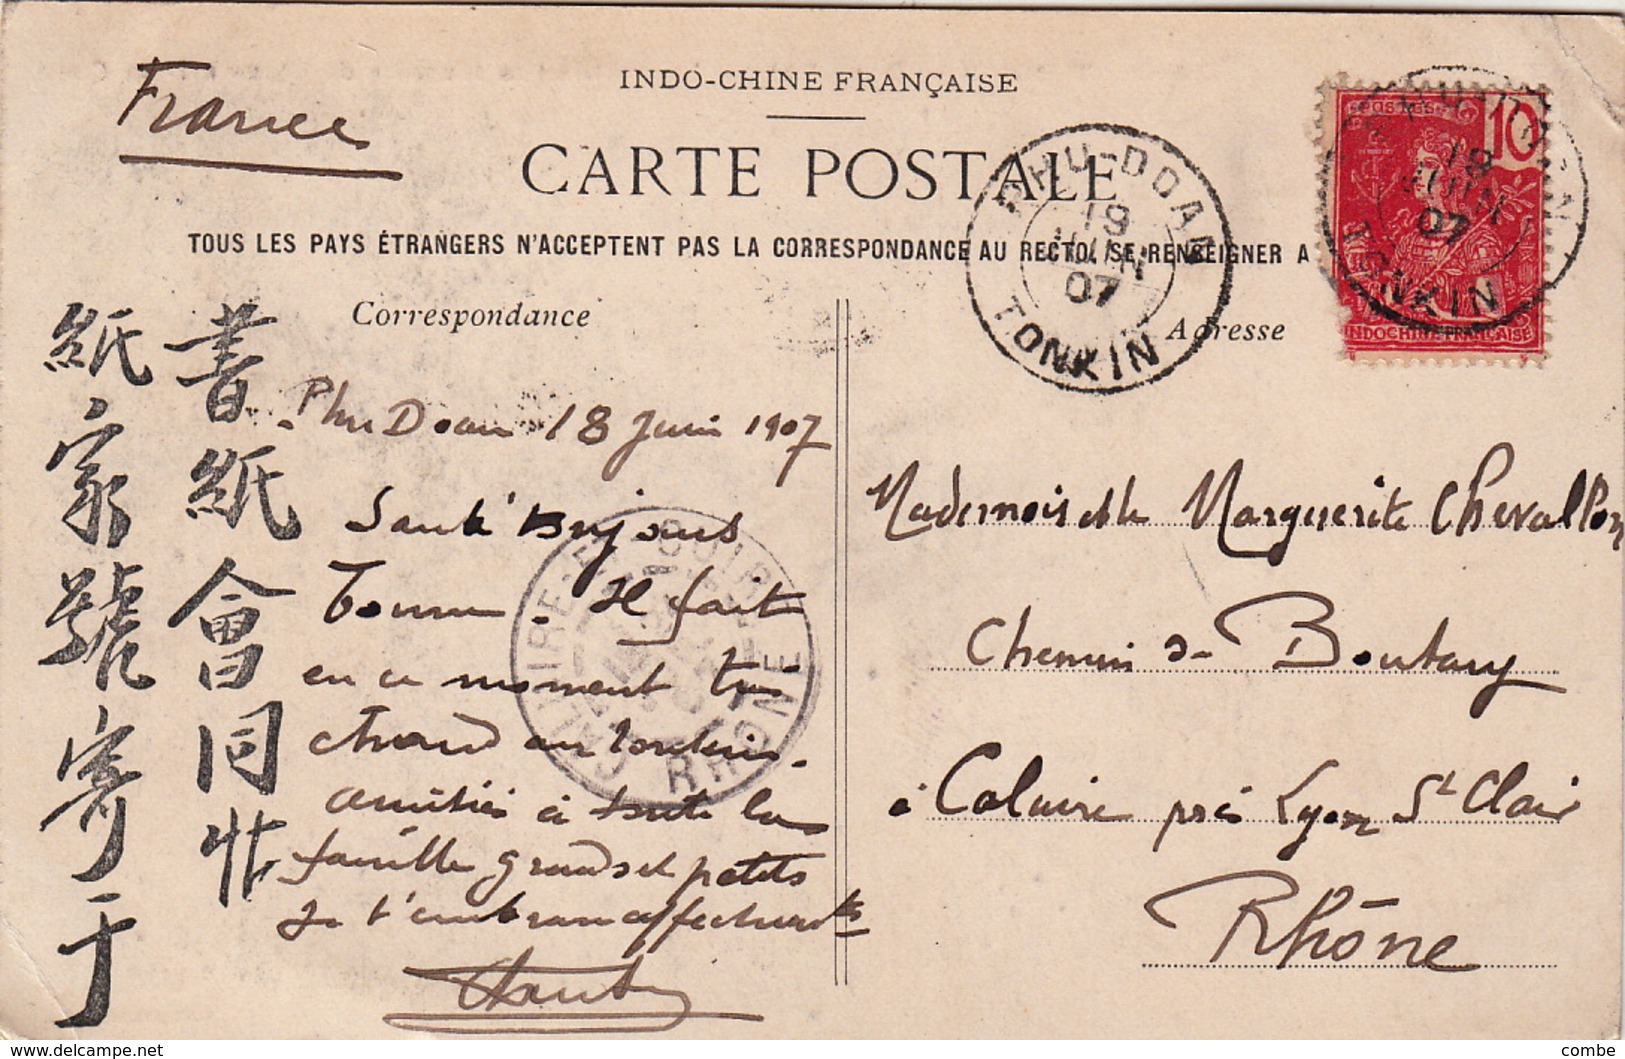 France
INDO-CHINE FRANÇAISE
CARTE POSTALE
TOUS LES PAYS ÉTRANGERS N'ACCEPTENT PAS LA CORRESPONDANCE AU RECTO. SE RENSEIGNER A
Correspondance
Adresse
PHU-DOAN
19
JUIN
07
TONKIN
10
19
JUIN
07
TONKIN
INDOCHINE FRANÇAISE
書紙會同
紙家號寄于
Phu Doan 18 Juin 1907
Santé toujours
bonne. Il fait
en ce moment très
chaud au Tonkin.
amitiés à toute la
famille grands et petits
Je t'embrasse affectueusts
Mademoiselle Marguerite Chevallon
Chemin de Boutary
à Caluire près Lyon St Clair
Rhône
CALUIRE-ET-CUIRE
RHONE
© delcampe.net
combe